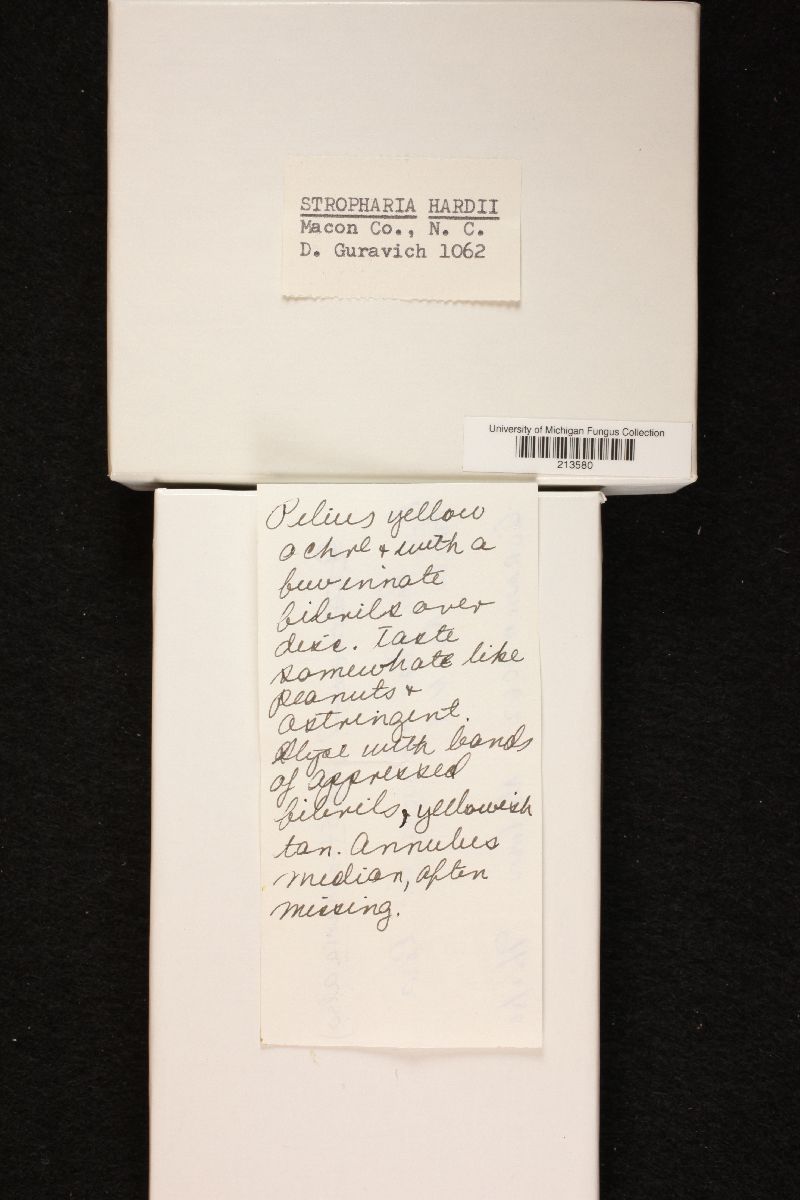 STROPHARIA HARDII
Macon Co., N. C.
D. Guravich 1062
University of Michigan Fungus Collection
213580
Pileus yellow
ochre & with a
few innate
fibrils over
disc. Taste
somewhat like
peanuts &
astringent.
Stipe with bands
of appressed
fibrils, yellowish
tan. Annulus
median, often
missing.